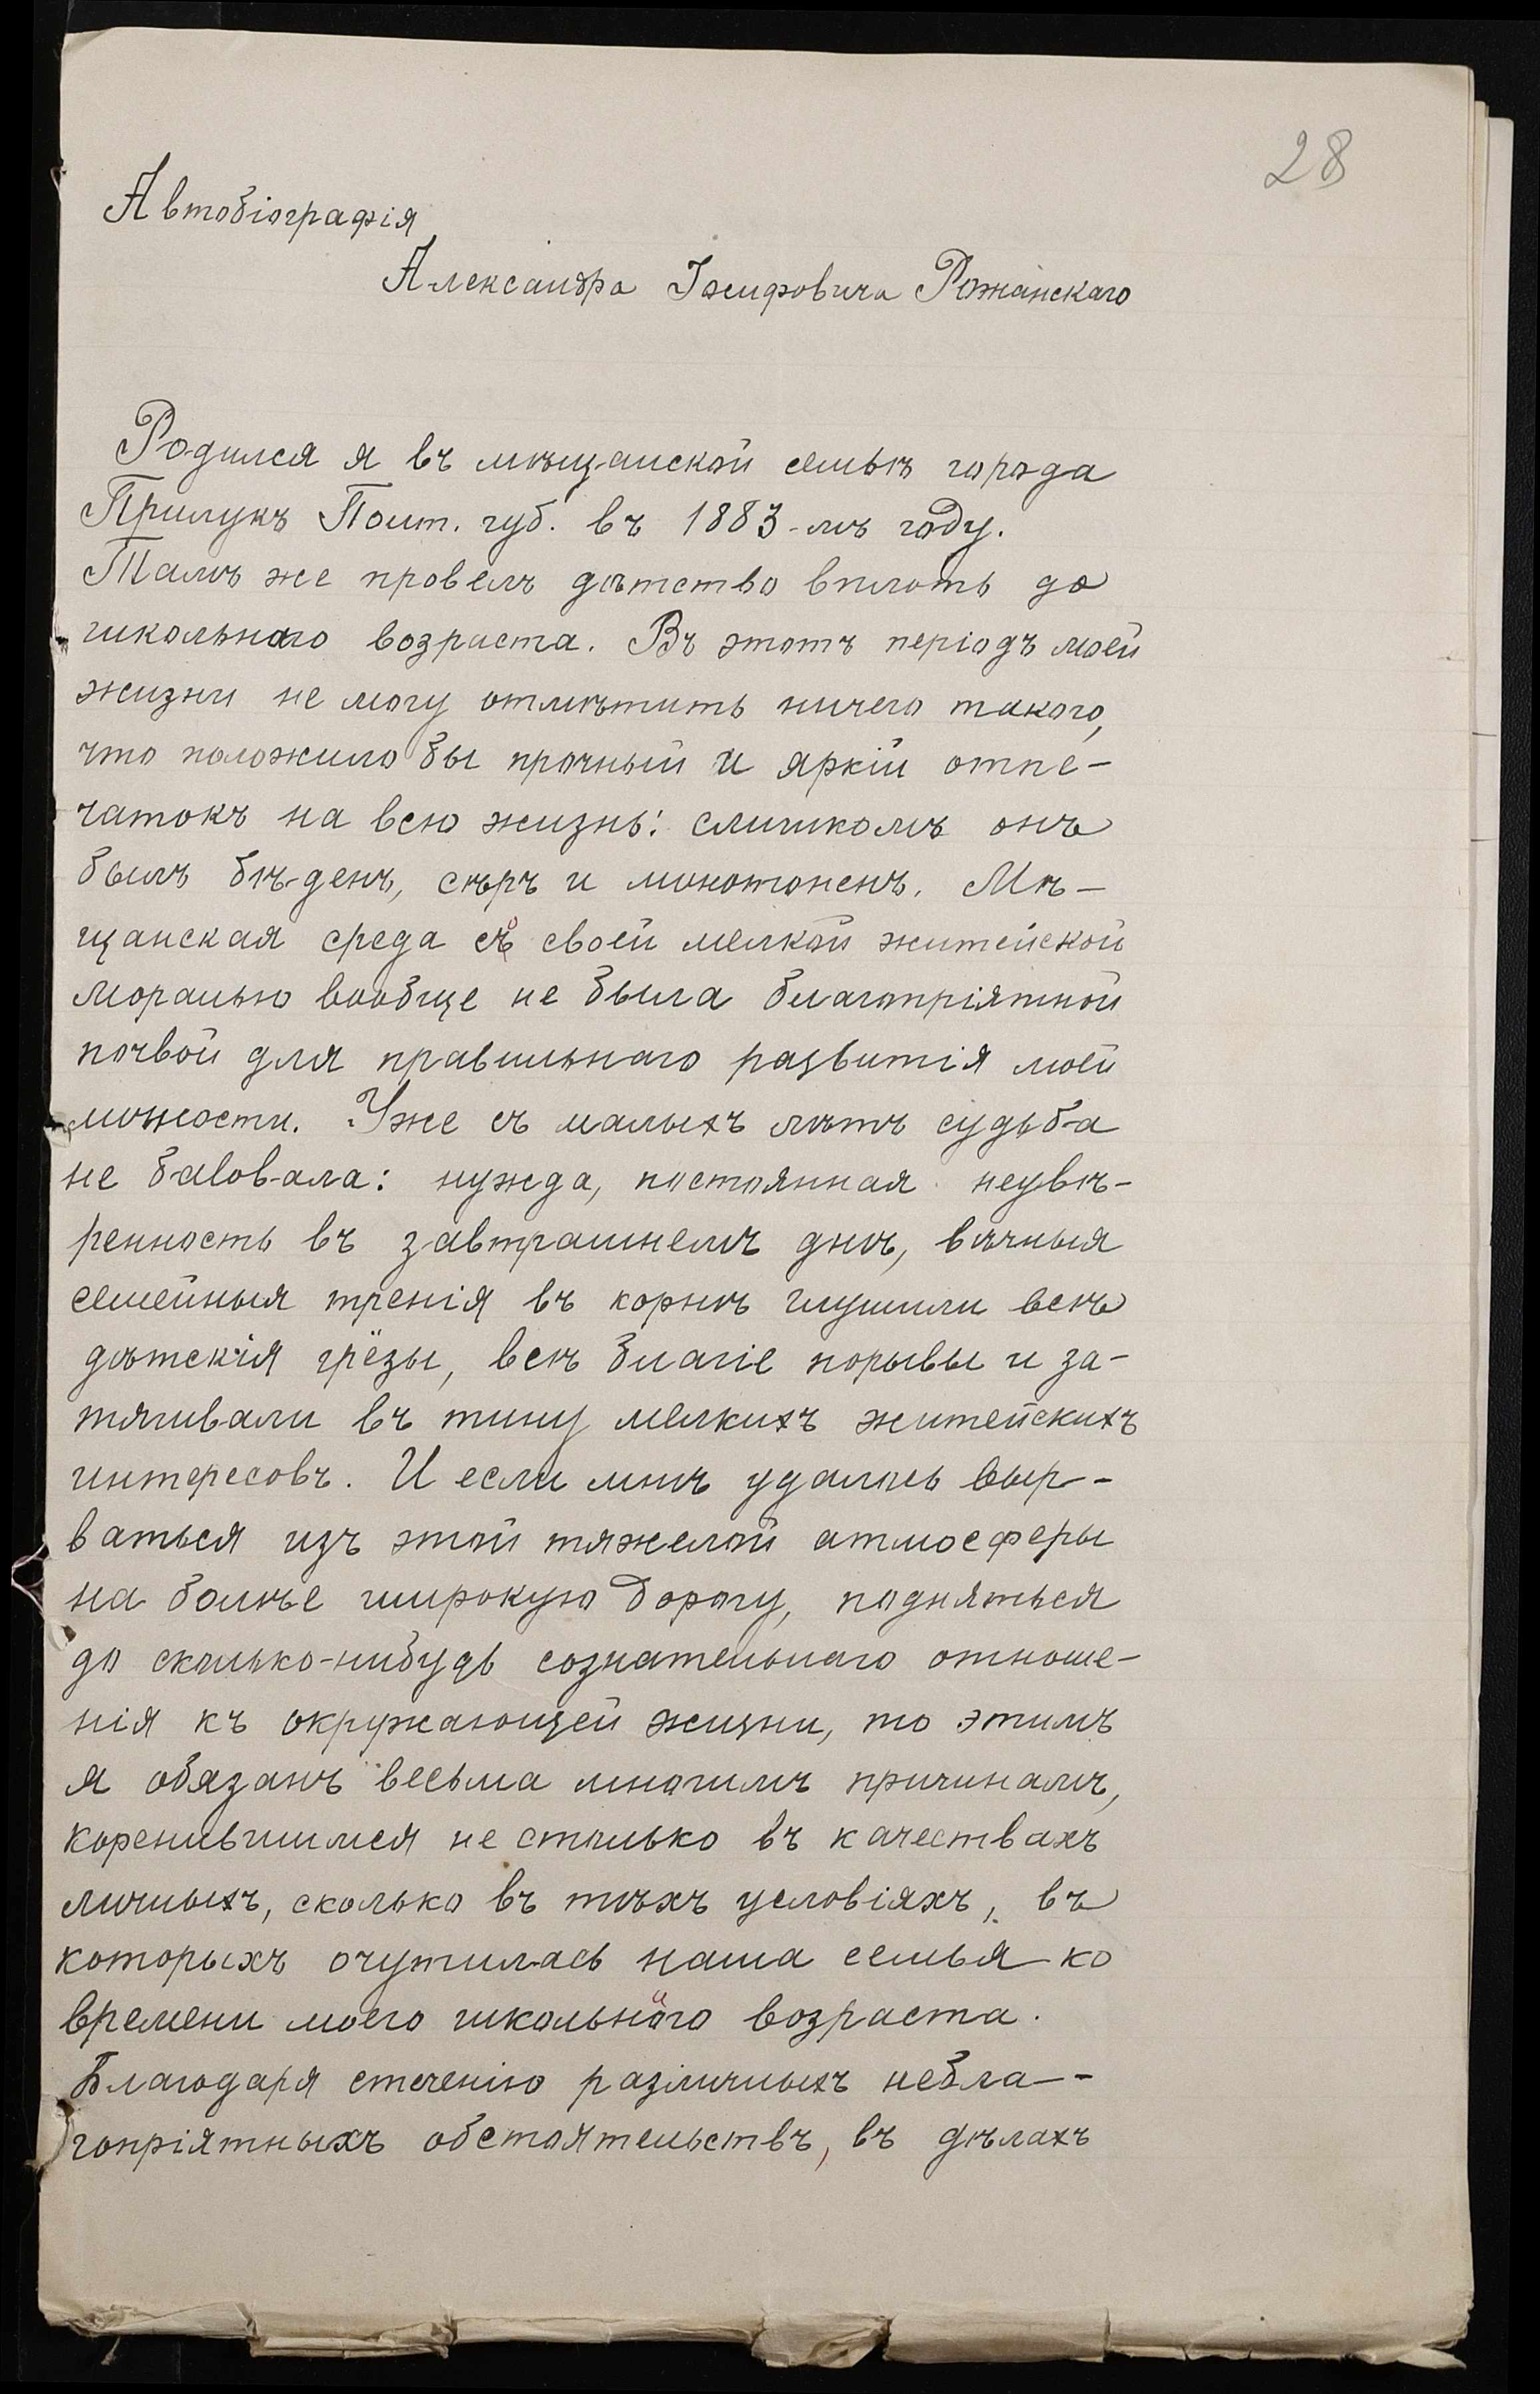 28
Автобіографія
Александра Іосифовича Рожанскаго
Родился я въ мѣщанской семьѣ города
Прилукъ Полт. губ. въ 1883-мъ году.
Тамъ же провелъ дѣтство вплоть до
школьнаго возраста. Въ этотъ періодъ моей
жизни не могу отмѣтить ничего такого,
что положило бы прочный и яркій отпе-
чатокъ на всю жизнь: слишкомъ онъ
былъ бѣденъ, сѣръ и монотоненъ. Мѣ-
щанская среда съ своей мелкой житейской
моралью вообще не была благопріятной
почвой для правильнаго развитія моей
личности. Уже съ малыхъ лѣтъ судьба
не баловала: нужда, постоянная неувѣ-
ренность въ завтрашнемъ днѣ, вѣчныя
семейныя тренія въ корнѣ глушили всѣ
дѣтскія грёзы, всѣ благіе порывы и за-
тягивали въ тину мелкихъ житейскихъ
интересовъ. И если мнѣ удалось выр-
ваться изъ этой тяжелой атмосферы
на болѣе широкую дорогу, подняться
до сколько-нибудь сознательнаго отноше-
нія къ окружающей жизни, то этимъ
я обязанъ весьма многимъ причинамъ,
коренившимся не столько въ качествахъ
личныхъ, сколько въ тѣхъ условіяхъ, въ
которыхъ очутилась наша семья ко
времени моего школьнаго возраста.
Благодаря стеченію различныхъ небла-
гопріятныхъ обстоятельствъ, въ дѣлахъ